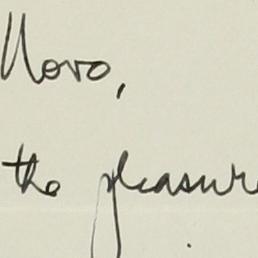 Novo,
the pleasure